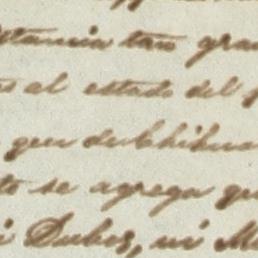 stancia tan gra
al estado del
que de Chihua
to se agrega qu
Dubes, ni M